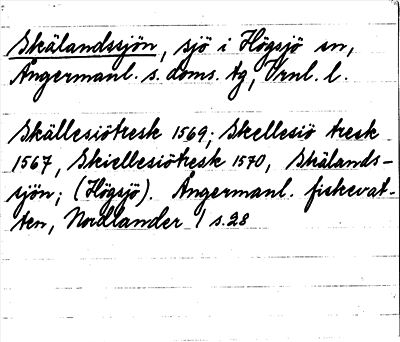 Skälandssjön, sjö i Högsjö sn,
Ångermanl. s. doms. tg, Vrnl. l.
Skällesiötresk 1569; Skellesiö tresk
1567, Skiellesiötresk 1570, Skälands-
sjön; (Högsjö). Ångermanl. fiskevat-
ten, Nordlander / s. 28